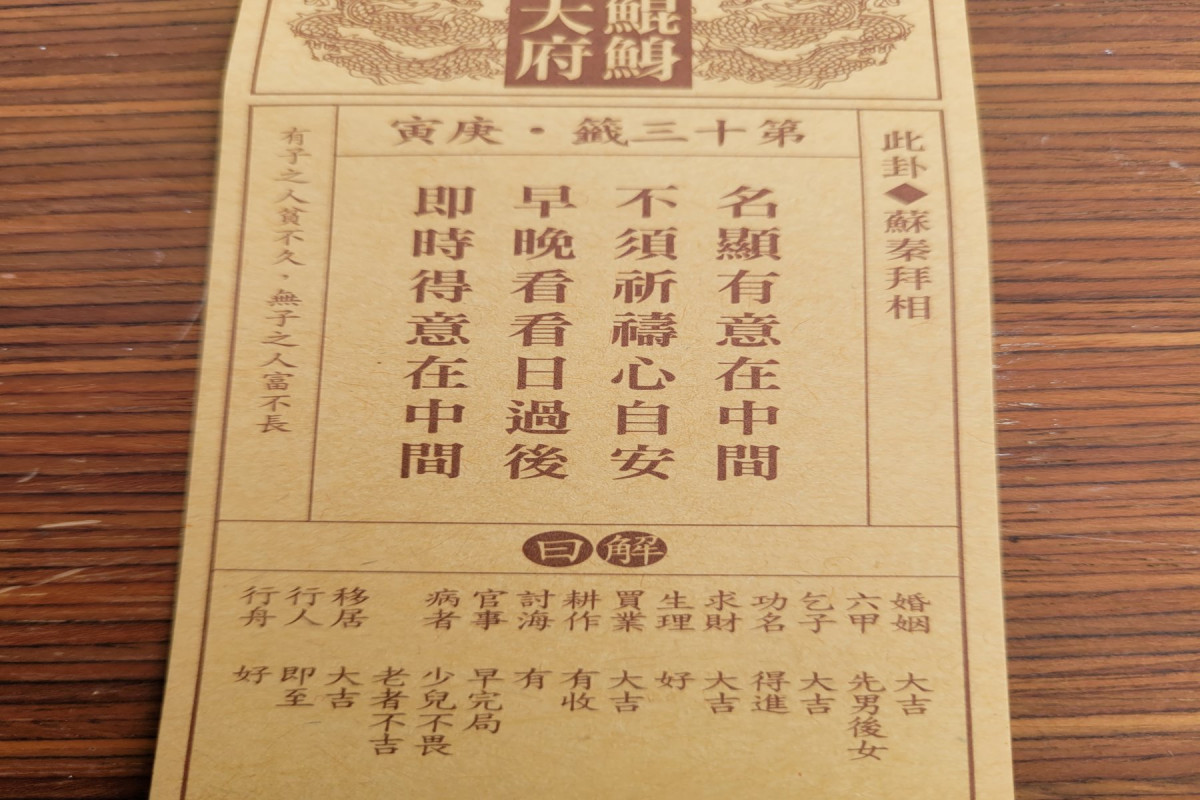 鯤鯓
天府
第十三籤・庚寅
此卦◆蘇秦拜相
名顯有意在中間
不須祈禱心自安
早晚看看日過後
即時得意在中間
有子之人貧不久，無子之人富不長
解曰
婚姻 大吉
六甲 先男後女
乞子 大吉
功名 得進
求財 大吉
生理 好
買業 大吉
耕作 有收
討海 有
官事 早完局
病者 少兒不畏
老者不吉
移居 大吉
行人 即至
行舟 好